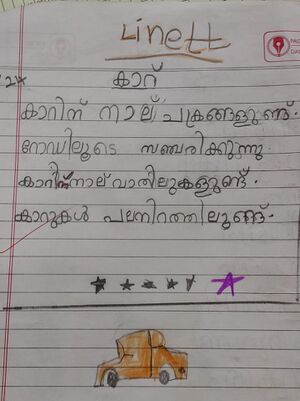 Linett
കാറ്
കാറിന് നാല് ചക്രങ്ങളുണ്ട്.
റോഡിലൂടെ സഞ്ചരിക്കുന്നു.
കാറിന് നാല് വാതിലുകളുണ്ട്.
കാറുകൾ പലനിറത്തിലുണ്ട്.